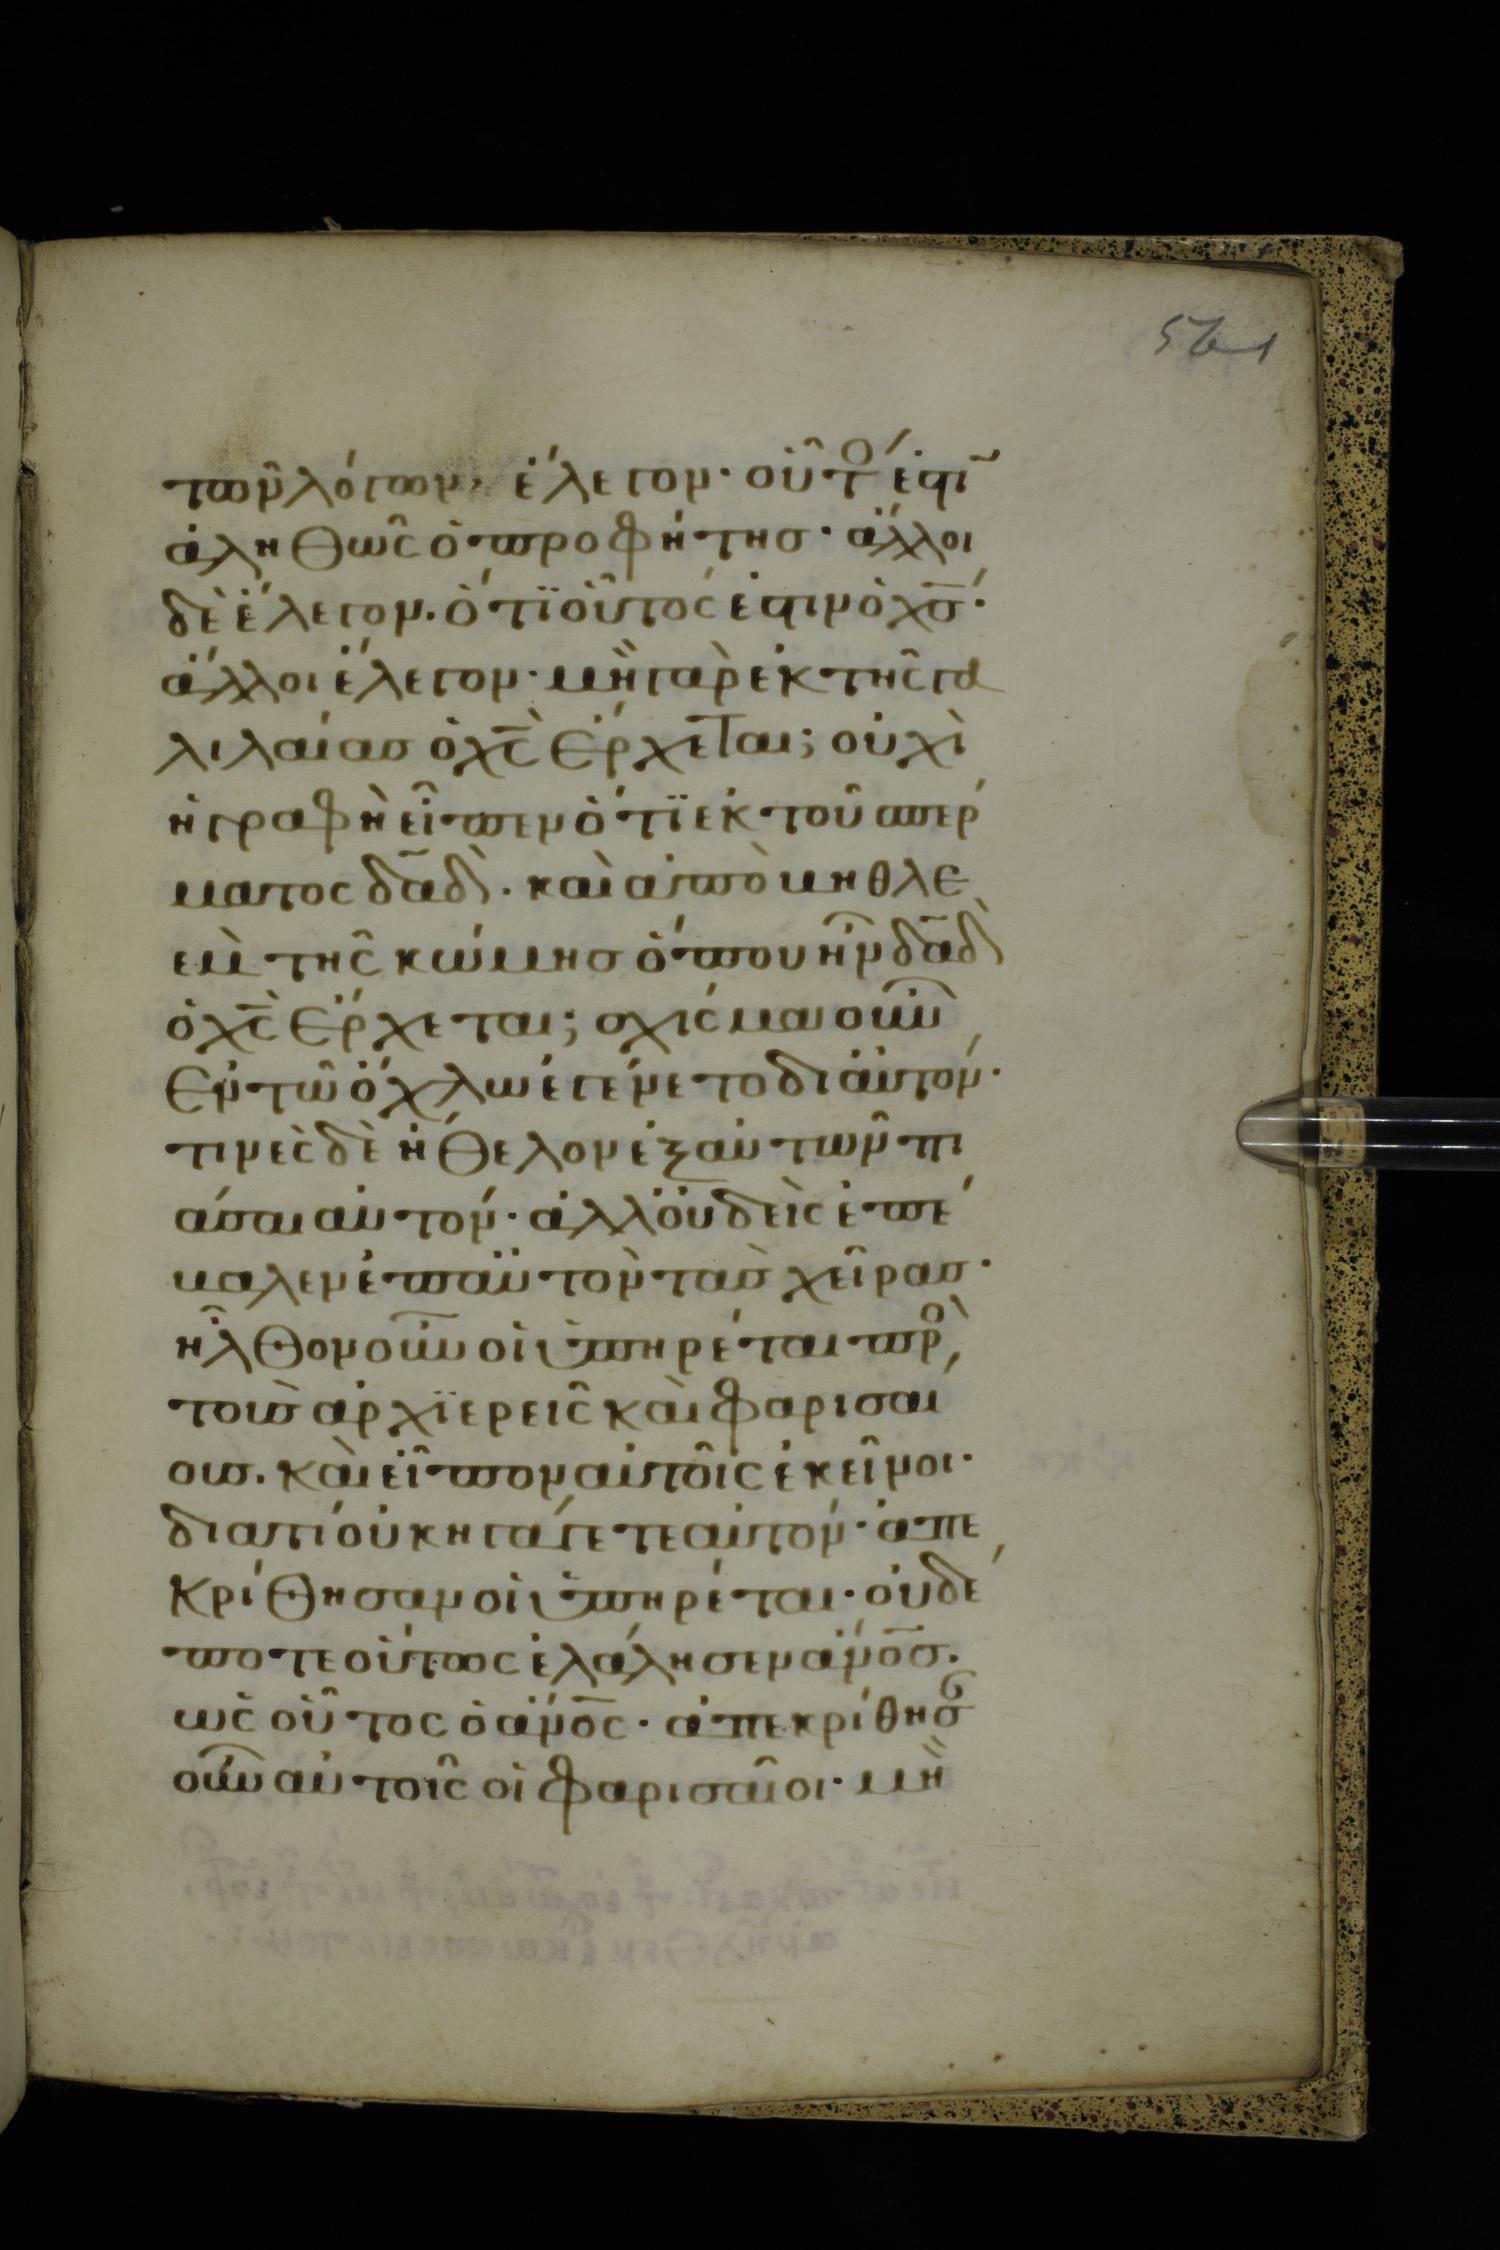 τῶν λόγων, ἔλεγον· οὗτό ἐστῖ
ἀληθῶς ὁ προφήτησ· ἄλλοι
δὲ ἔλεγον. ὅτϊ οὗτος ἐστιν ὁ χ̅σ̅·
ἄλλοι ἔλεγον· μὴ γὰρ ἐκ τῆς γα
λιλαίασ ὁ χ̅ς̅ ἔρχεται; οὐχὶ
ἡ γραφὴ εἶπεν ὅτϊ ἐκ τοῦ σπέρ
ματος δα̅δ̅. καὶ ἀπὸ βηθλε
ὲμ τῆς κώμησ ὅπου ἦν δα̅δ̅
ὁ χ̅ς̅ ἔρχεται; σχίσμα οὖν
ἐν τῶ ὄχλω ἐγένετο δι αὐτόν·
τινὲς δὲ ἤθελον ἐξ αὐτῶν πι
άσαι αὐτόν· ἀλλ οὐδεὶς ἐπέ
βαλεν ἐπ αὐτὸν τὰσ χεῖρασ·
ἦλθον οὖν οἱ ὑπηρέται πρὸ
τοὺσ ἀρχϊερεῖς καὶ φαρισαί
ουσ. καὶ εἶπον αὐτοῖς ἐκεῖνοι·
διατί οὐκ ἠγάγετε αὐτόν· ἀπε
κρίθησαν οἱ ὑπηρέται· οὐδέ
ποτε οὕτως ἐλάλησεν ἄν̅ο̅σ̅.
ὡς οὗτος ὁ ἄν̅ο̅ς̅· ἀπεκρίθησ
οὖν αὐτοῖς οἱ φαρισαῖοι· μὴ